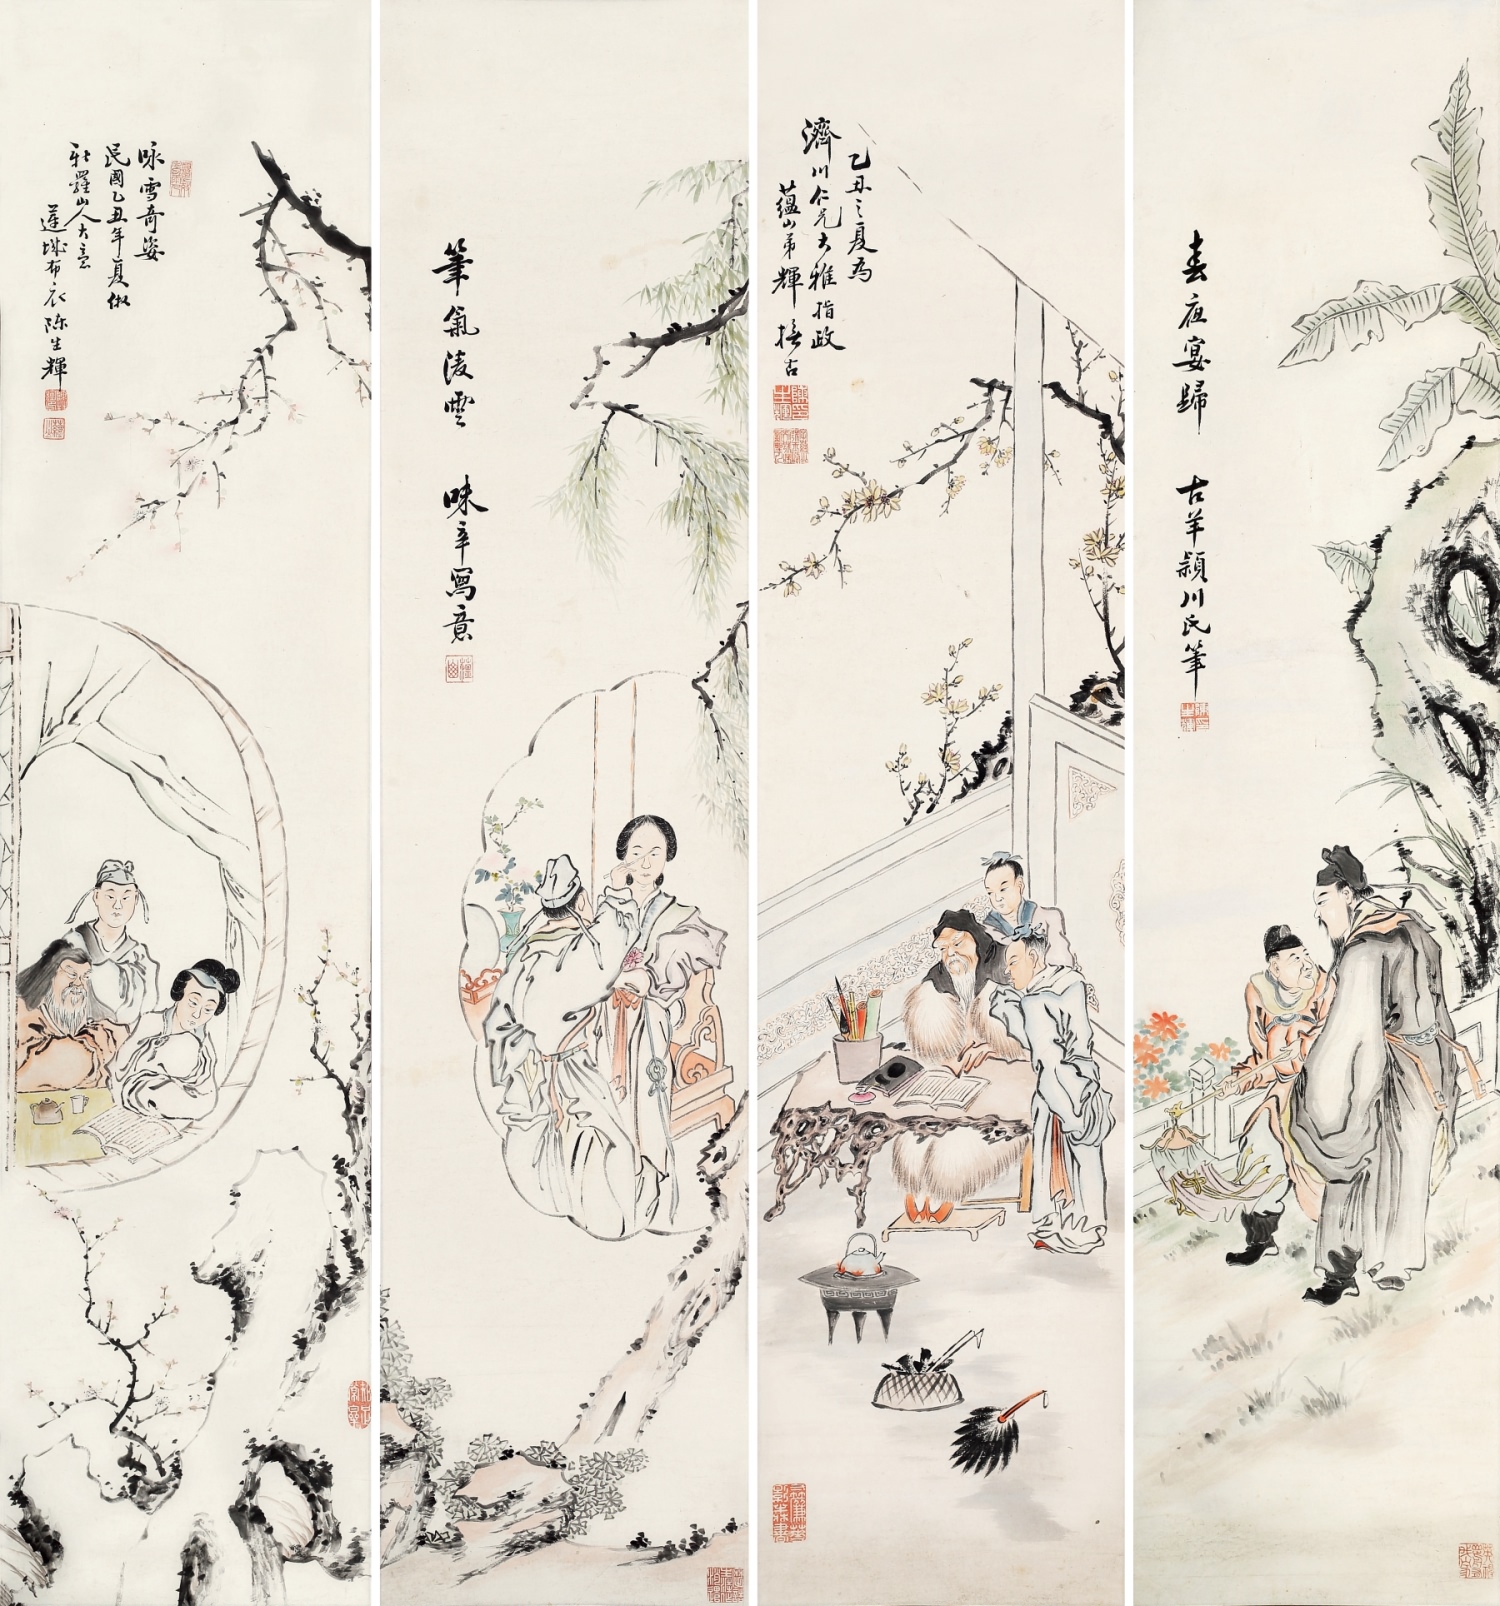 咏雪奇姿
民國乙丑年夏倣
新羅山人大意
蓮城布衣陈生輝
筆氣凌雲 味辛寫意
乙丑之夏為
濟川仁兄大雅指政
蘊山弟輝撫古
春夜宴歸 古羊潁川氏筆